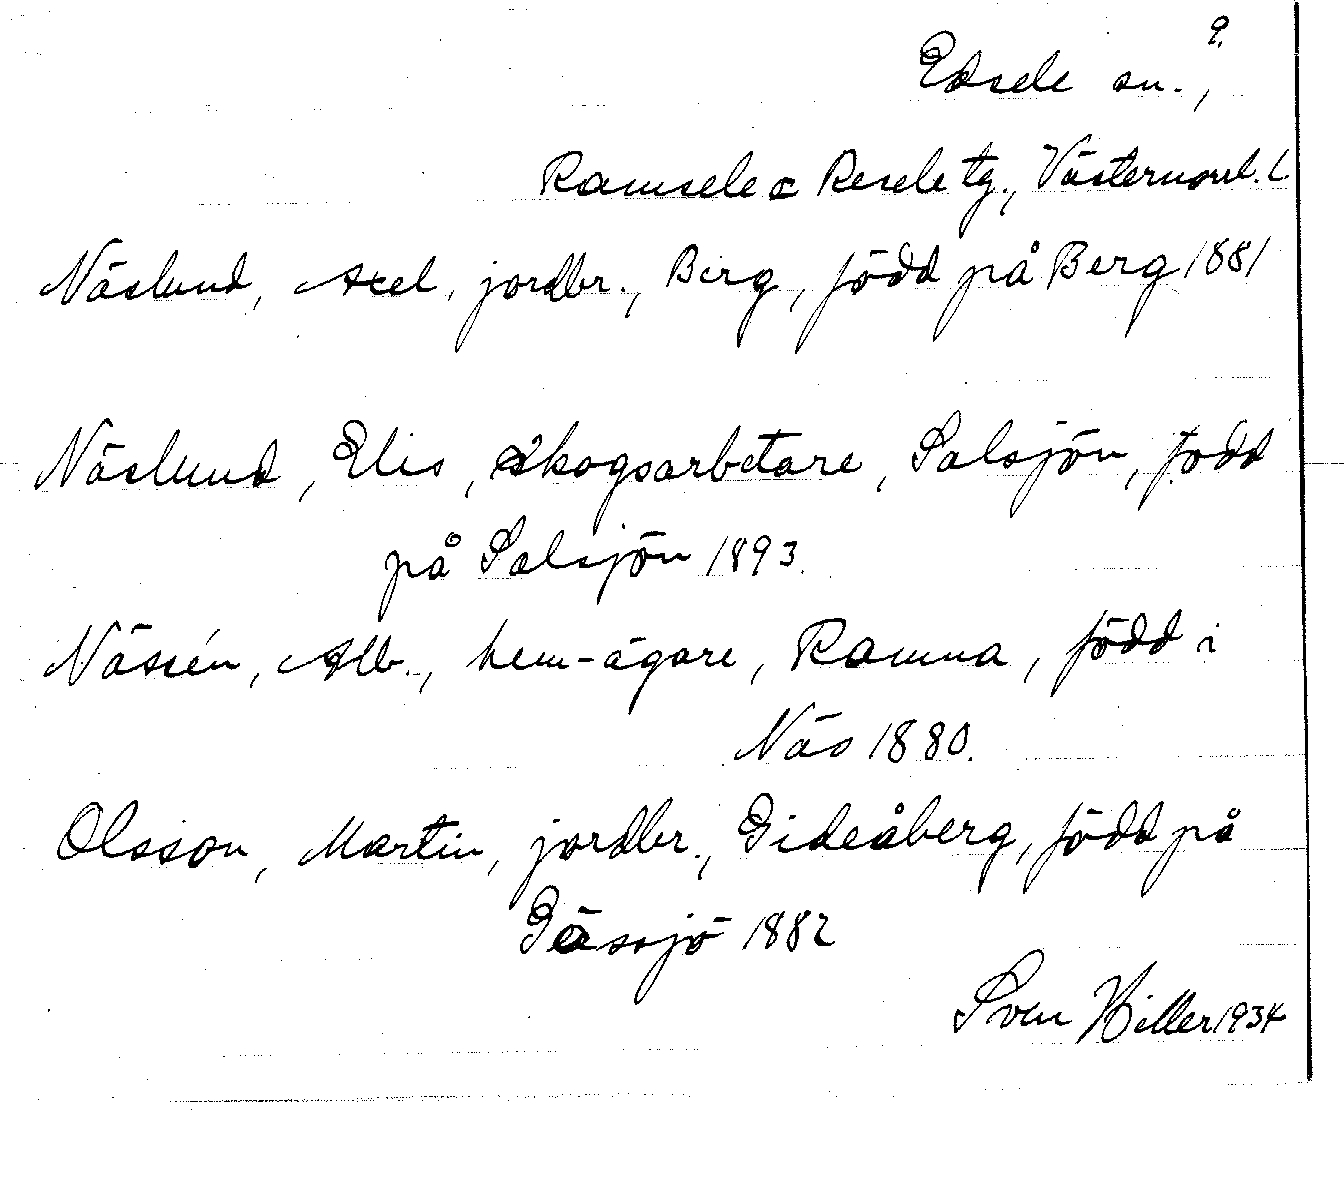 9.
Edsele sn.,
Ramsele o Resele tg., Västernorrl. l.
Näslund, Axel, jordbr., Berg, född på Berg 1881
Näslund, Elis, skogsarbetare, Salsjön, född
på Salsjön 1893.
Nässén, Alb., hem-ägare, Ramna, född i
Näs 1880.
Olsson, Martin, jordbr., Gideåberg, född på
Gåssjö 1882
Sven Hiller 1934